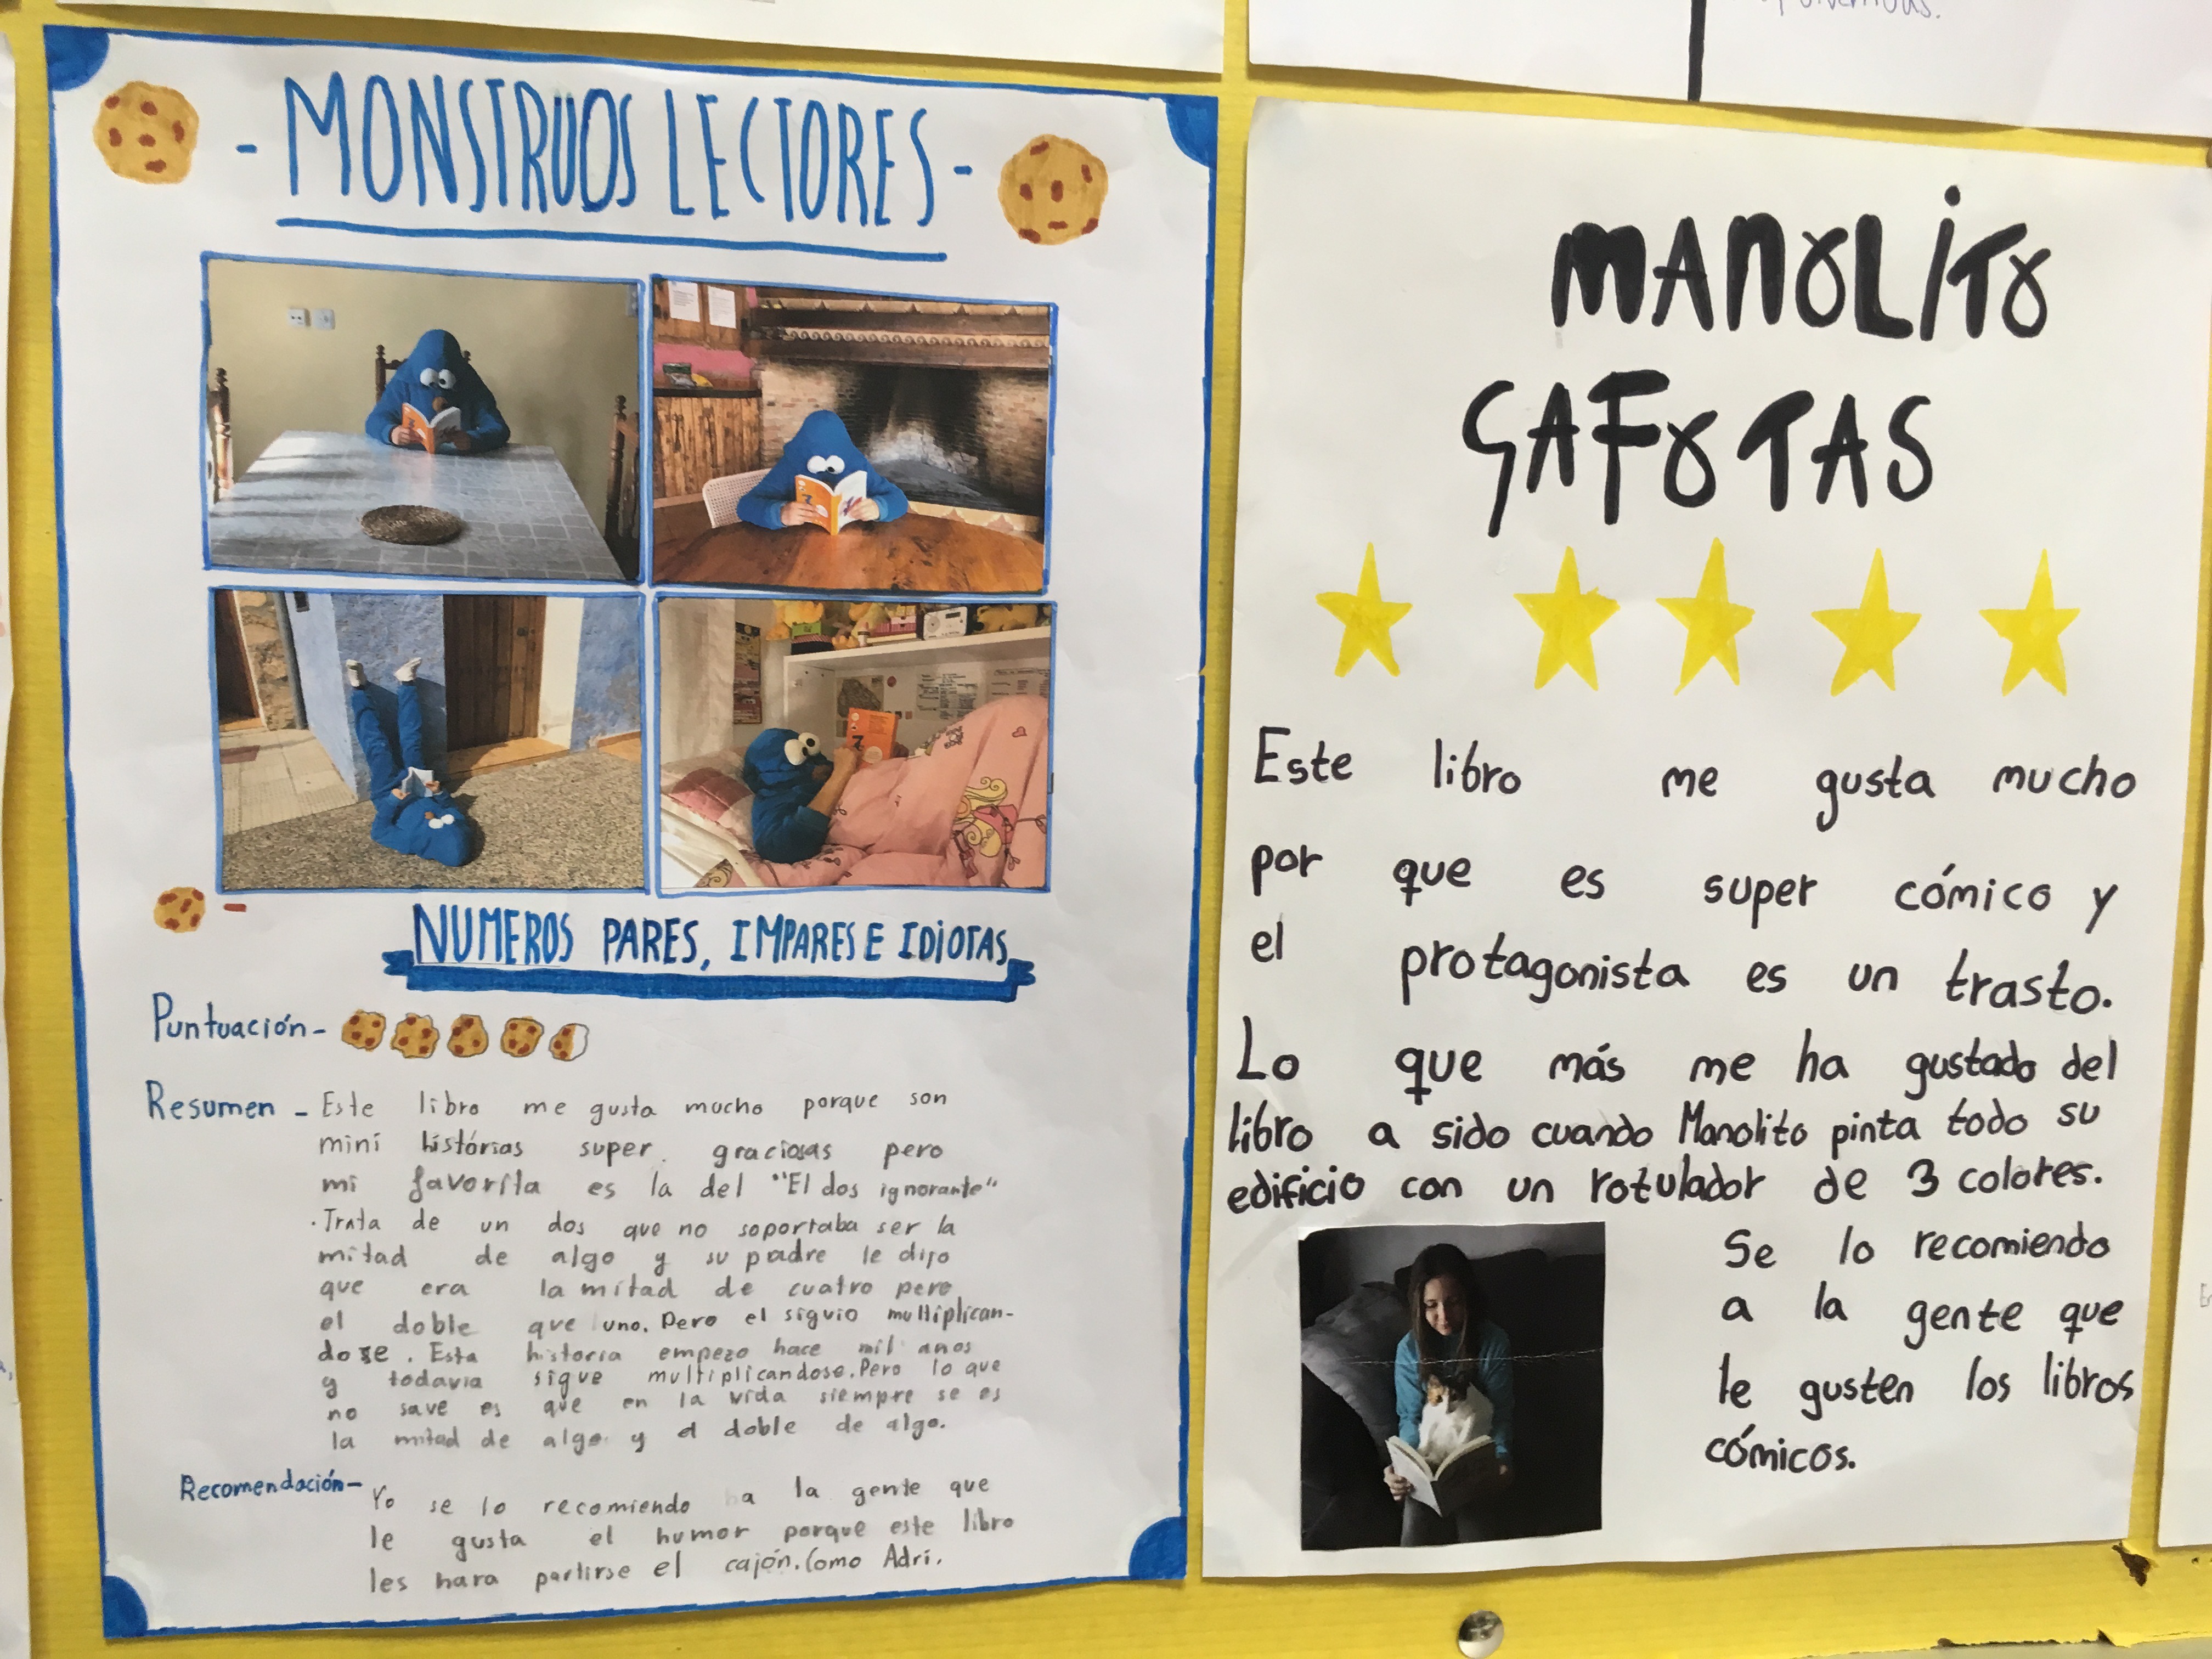 - MONSTRUOS LECTORES -
NUMEROS PARES, IMPARES E IDIOTAS
Puntuación -
Resumen - Este libro me gusta mucho porque son
mini histórias super graciosas pero
mi favorita es la del "El dos ignorante"
.Trata de un dos que no soportaba ser la
mitad de algo y su padre le dijo
que era la mitad de cuatro pero
el doble que uno. Pero el siguio multiplican-
dose. Esta historia empezo hace mil anos
y todavia sigue multiplicandose. Pero lo que
no save es que en la vida siempre se es
la mitad de algo y el doble de algo.
Recomendación - Yo se lo recomiendo a la gente que
le gusta el humor porque este libro
les hara partirse el cajón. Como Adri.
MANOLITO
GAFOTAS
Este libro me gusta mucho
por que es super cómico y
el protagonista es un trasto.
Lo que más me ha gustado del
libro a sido cuando Manolito pinta todo su
edificio con un rotulador de 3 colores.
Se lo recomiendo
a la gente que
le gusten los libros
cómicos.